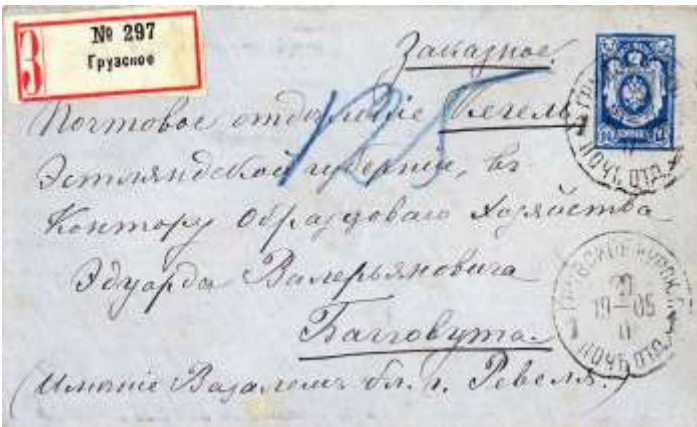 № 297
З
Грузское
Заказное.
Почтовое отделеніе Кегель
Эстляндской губерніи, въ
Контору Образцоваго Хозяйства
Эдуарда Валерьяновича
Багговута.
(Имѣніе Вазалемъ бл. г. Ревеля.)
125
ПОЧТ. ОТД.
19-05
ПОЧТ. ОТД.